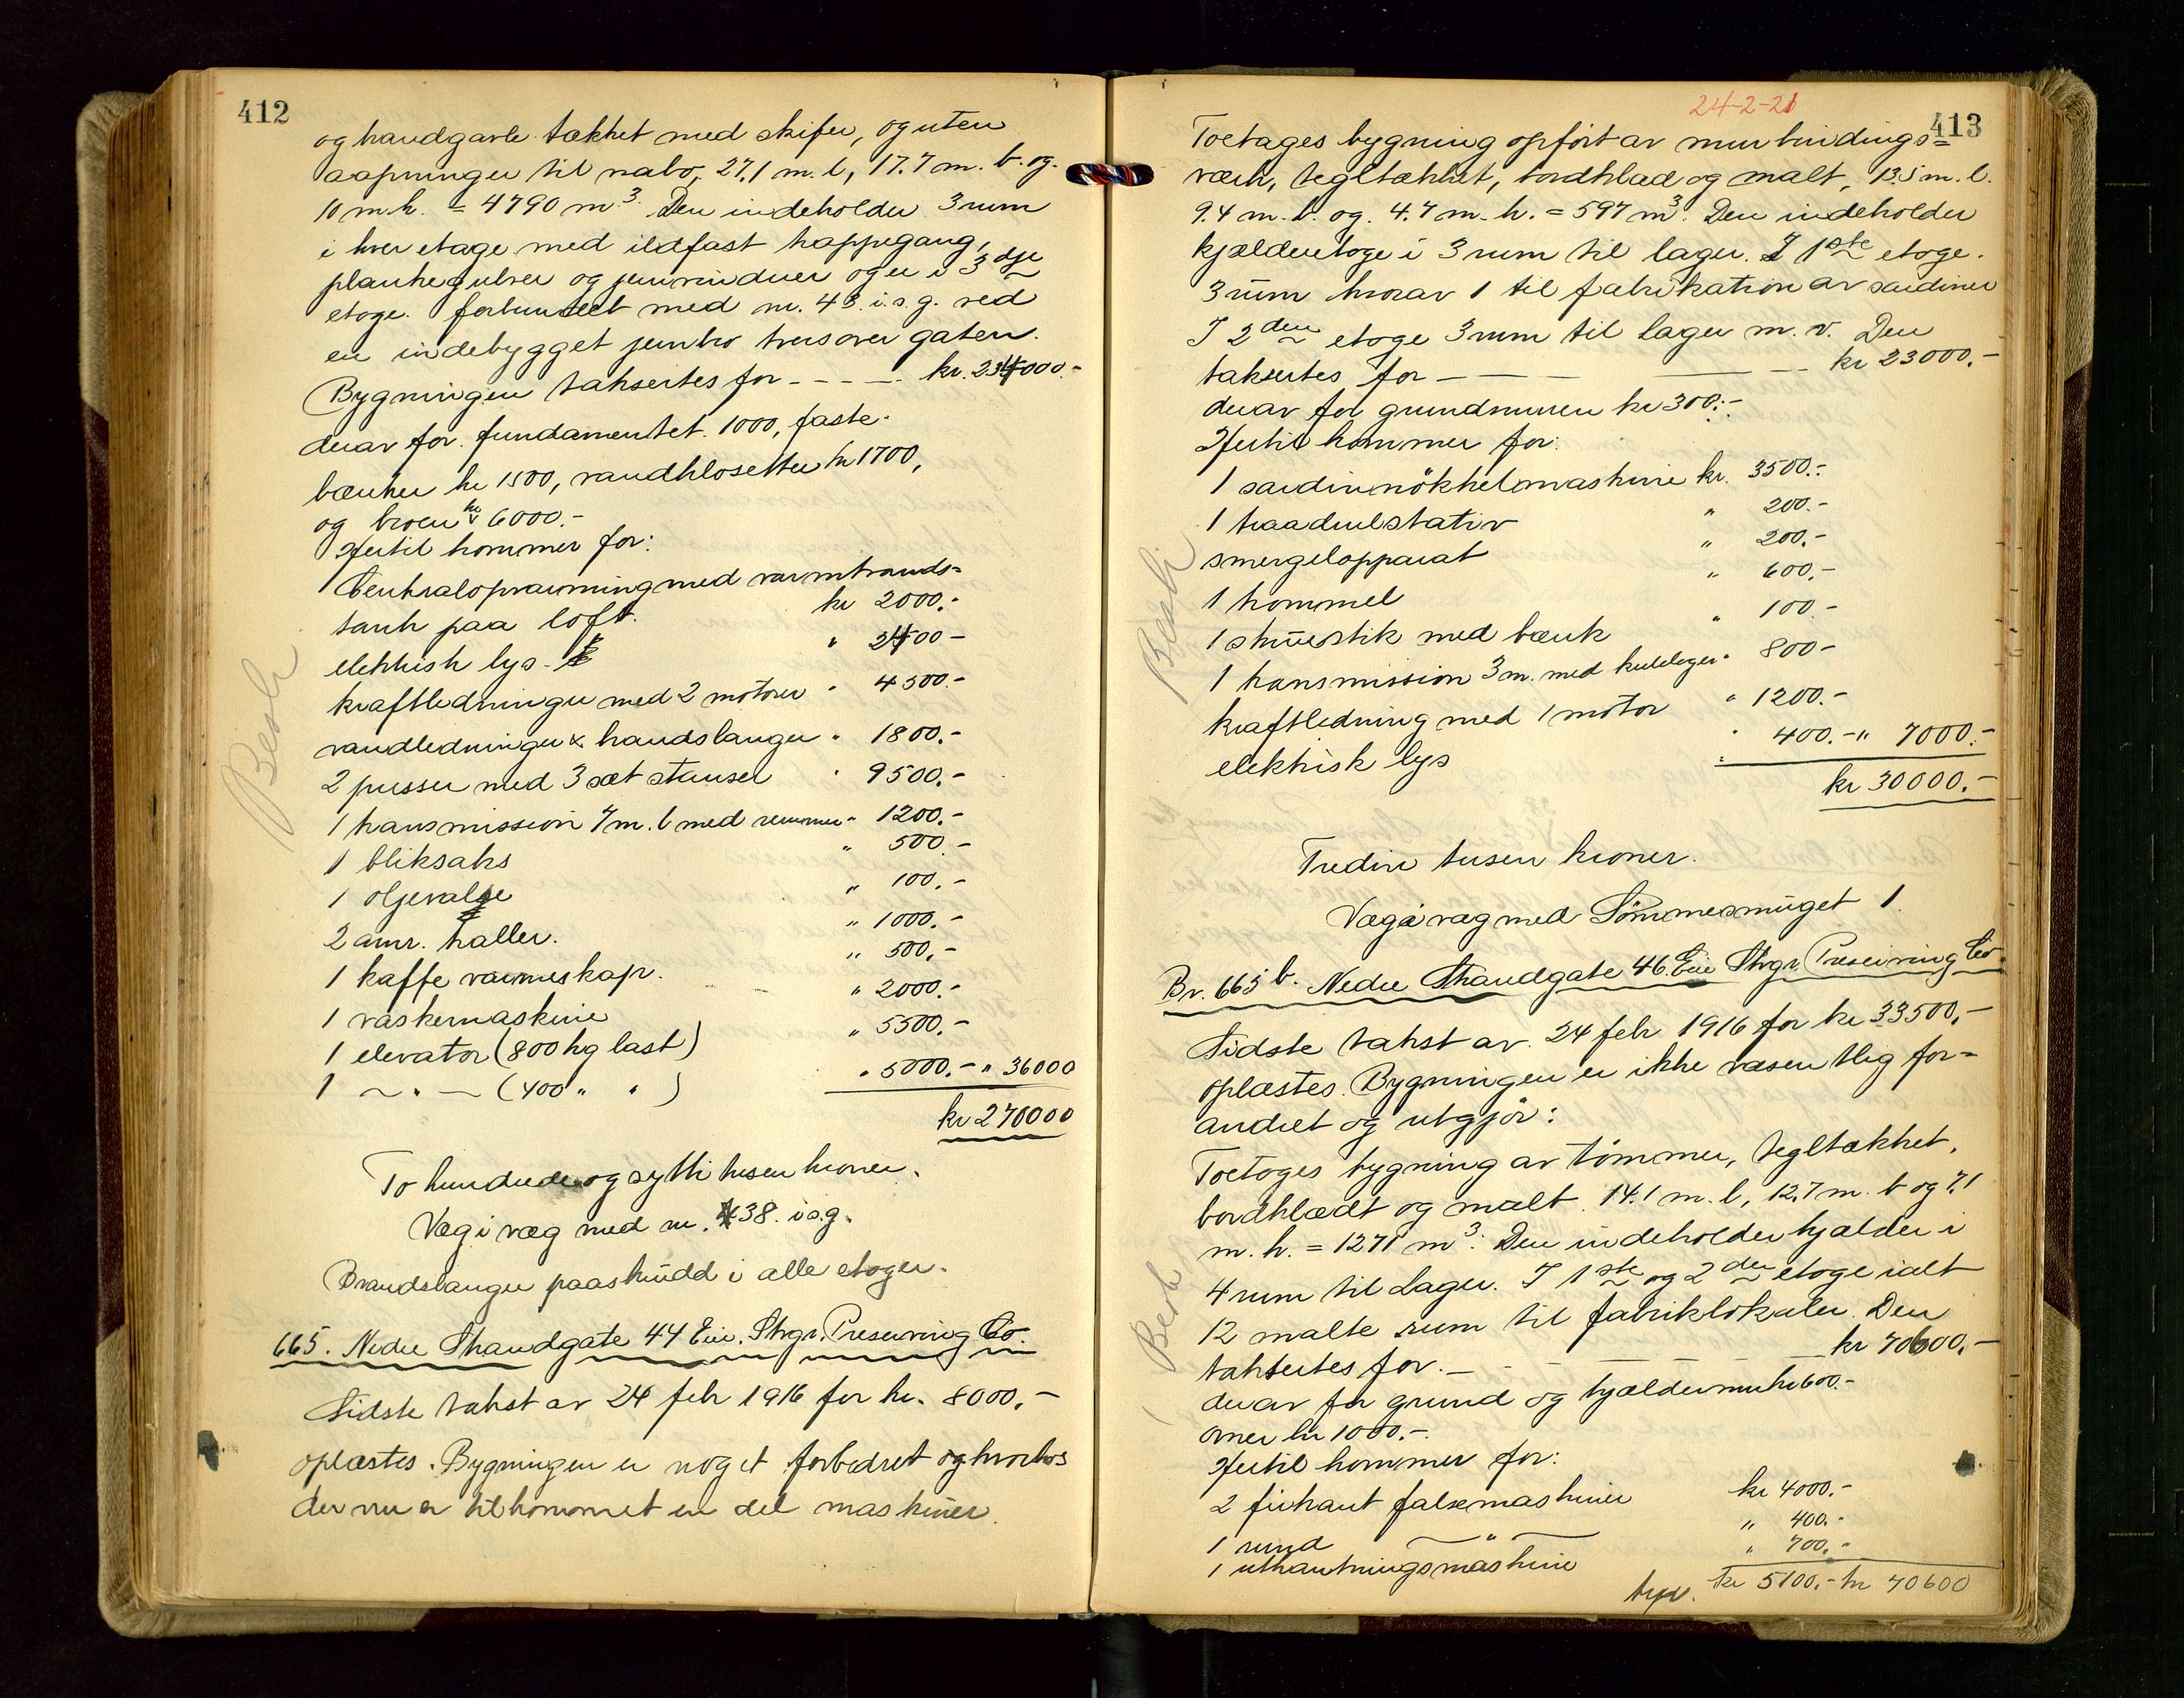 412
og brandgavle tækket med skifer, og uten
aapninger til nabo, 27.1 m. l, 17.7 m. b. og
10 m h. = 4790 m³. Den indeholder 3 rum
i hver etage med ildfast trappegang,
plankegulver og jernvinduer og er i 3dje
etage forbundet med nr. 43 i. s. g. ved
en indebygget jernbro tversover gaten.
Bygningen taksertes for - - - - kr. 234000.-
derav for fundamentet 1000, faste
bænker kr 1500, vandklosetter kr 1700,
og broen kr 6000.-
Hertil kommer for:
1 Centralopvarmning med varmtvands-
tank paa loft. kr 2000.-
elektrisk lys " 2400 -
kraftledninger med 2 motorer " 4500.-
vandledninger & brandslanger " 1800.-
2 presser med 3 sæt stanser " 9500.-
1 transmission 7 m. l med remmer " 1200.-
1 bliksaks " 500.-
1 oljevalse " 100.-
2 amr. traller. " 1000.-
1 kaffe varmeskap. " 500.-
1 vaskemaskine " 2000.-
1 elevator (800 kg last) " 5500.-
1 — " — (400 " " ) " 5000.- " 36000
kr 270000
To hundrede og sytti tusen kroner.
Væg i væg med nr. 38. i s.g.
Brandslanger paaskrudd i alle etager.
665. Nedre Strandgate 44 Eier. Stvgr. Preserving Co.
Sidste takst av 24 febr 1916 for kr. 8000.-
oplæstes. Bygningen er noget forbedret og hvorhos
der nu er tilkommet en del maskiner.
Besk
24-2-21
413
Toetages bygning opført av murbindings=
verk, tegltækket, bordklæd og malt, 13.5 m. l.
9.4 m. b. og 4.7 m. h. = 597 m³. Den indeholder
kjælderetage i 3 rum til lager. I 1ste etage.
3 rum hvorav 1 til fabrikation av sardiner
I 2den etage 3 rum til lager m. v. Den
taksertes for — — — — kr 23000.-
derav for grundmuren kr 300.-
Hertil kommer for:
1 sardinnökkelmaskine kr. 3500.-
1 traadrulstativ " 200.-
smergelapparat " 200.-
1 trommel " 600.-
1 skruestik med bænk " 100.-
1 transmission 3 m. med kulelager " 800-
kraftledning med 1 motor " 1200.-
elektrisk lys " 400.- " 7000.-
kr 30000.-
Tredive tusen kroner.
Væg i væg med Sömmesmuget 1.
Br. 665 b. Nedre Strandgate 46. Eier Stvgr. Preserving Co.
Sidste takst av 24 febr 1916 for kr 33500.-
oplæstes. Bygningen er ikke væsentlig for=
andret og utgjör:
Toetages bygning av tömmer, tegltækket,
bordklædt og malt. 14.1 m. l, 12.7 m. b og 7.1
m. h. = 1271 m³. Den indeholder kjælder i
4 rum til Lager. I 1ste og 2den etage ialt
12 malte rum til fabriklokaler. Den
taksertes for. — - - — — kr 70600.-
derav for grund og kjældermur kr 600.-
ovner kr 1000.-
Hertil kommer for:
2 firkant falsemaskiner kr 4000.-
1 rund — " — " 400.-
1 utkantningsmaskine " 700.-
kr 5100.- kr 70600
Besk
Besk